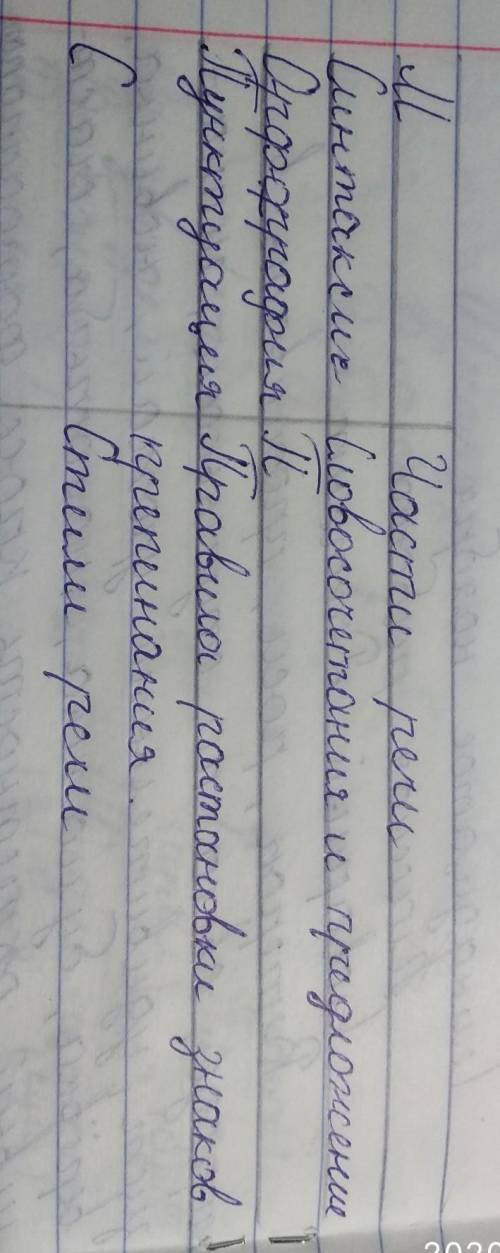 М Части речи
Синтаксис Словосочетания и предложение
Орфография П
Пунктуация Правила растановки знаков
препинания.
С Стили речи